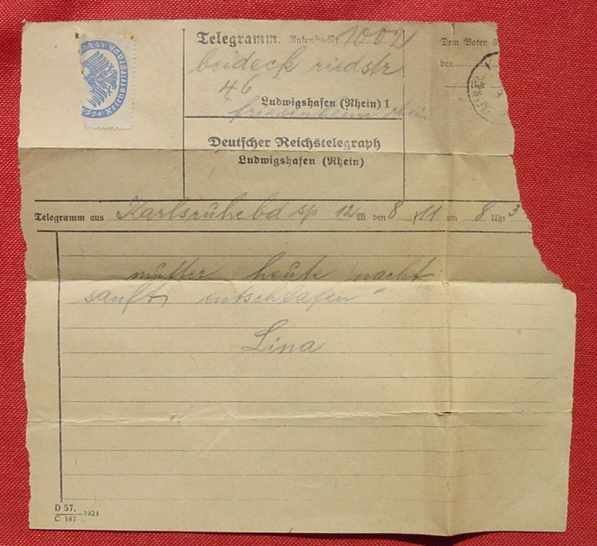 Telegramm.
Dem Boten
beideck riedstr
46
Ludwigshafen (Rhein) 1
Deutscher Reichstelegraph
Ludwigshafen (Rhein)
Telegramm aus Karlsruhe bd 12 W. den 8 11 um 8 Uhr 3
mutter heute nacht
sanft entschlafen
Lina
D 57.
C 187 1921